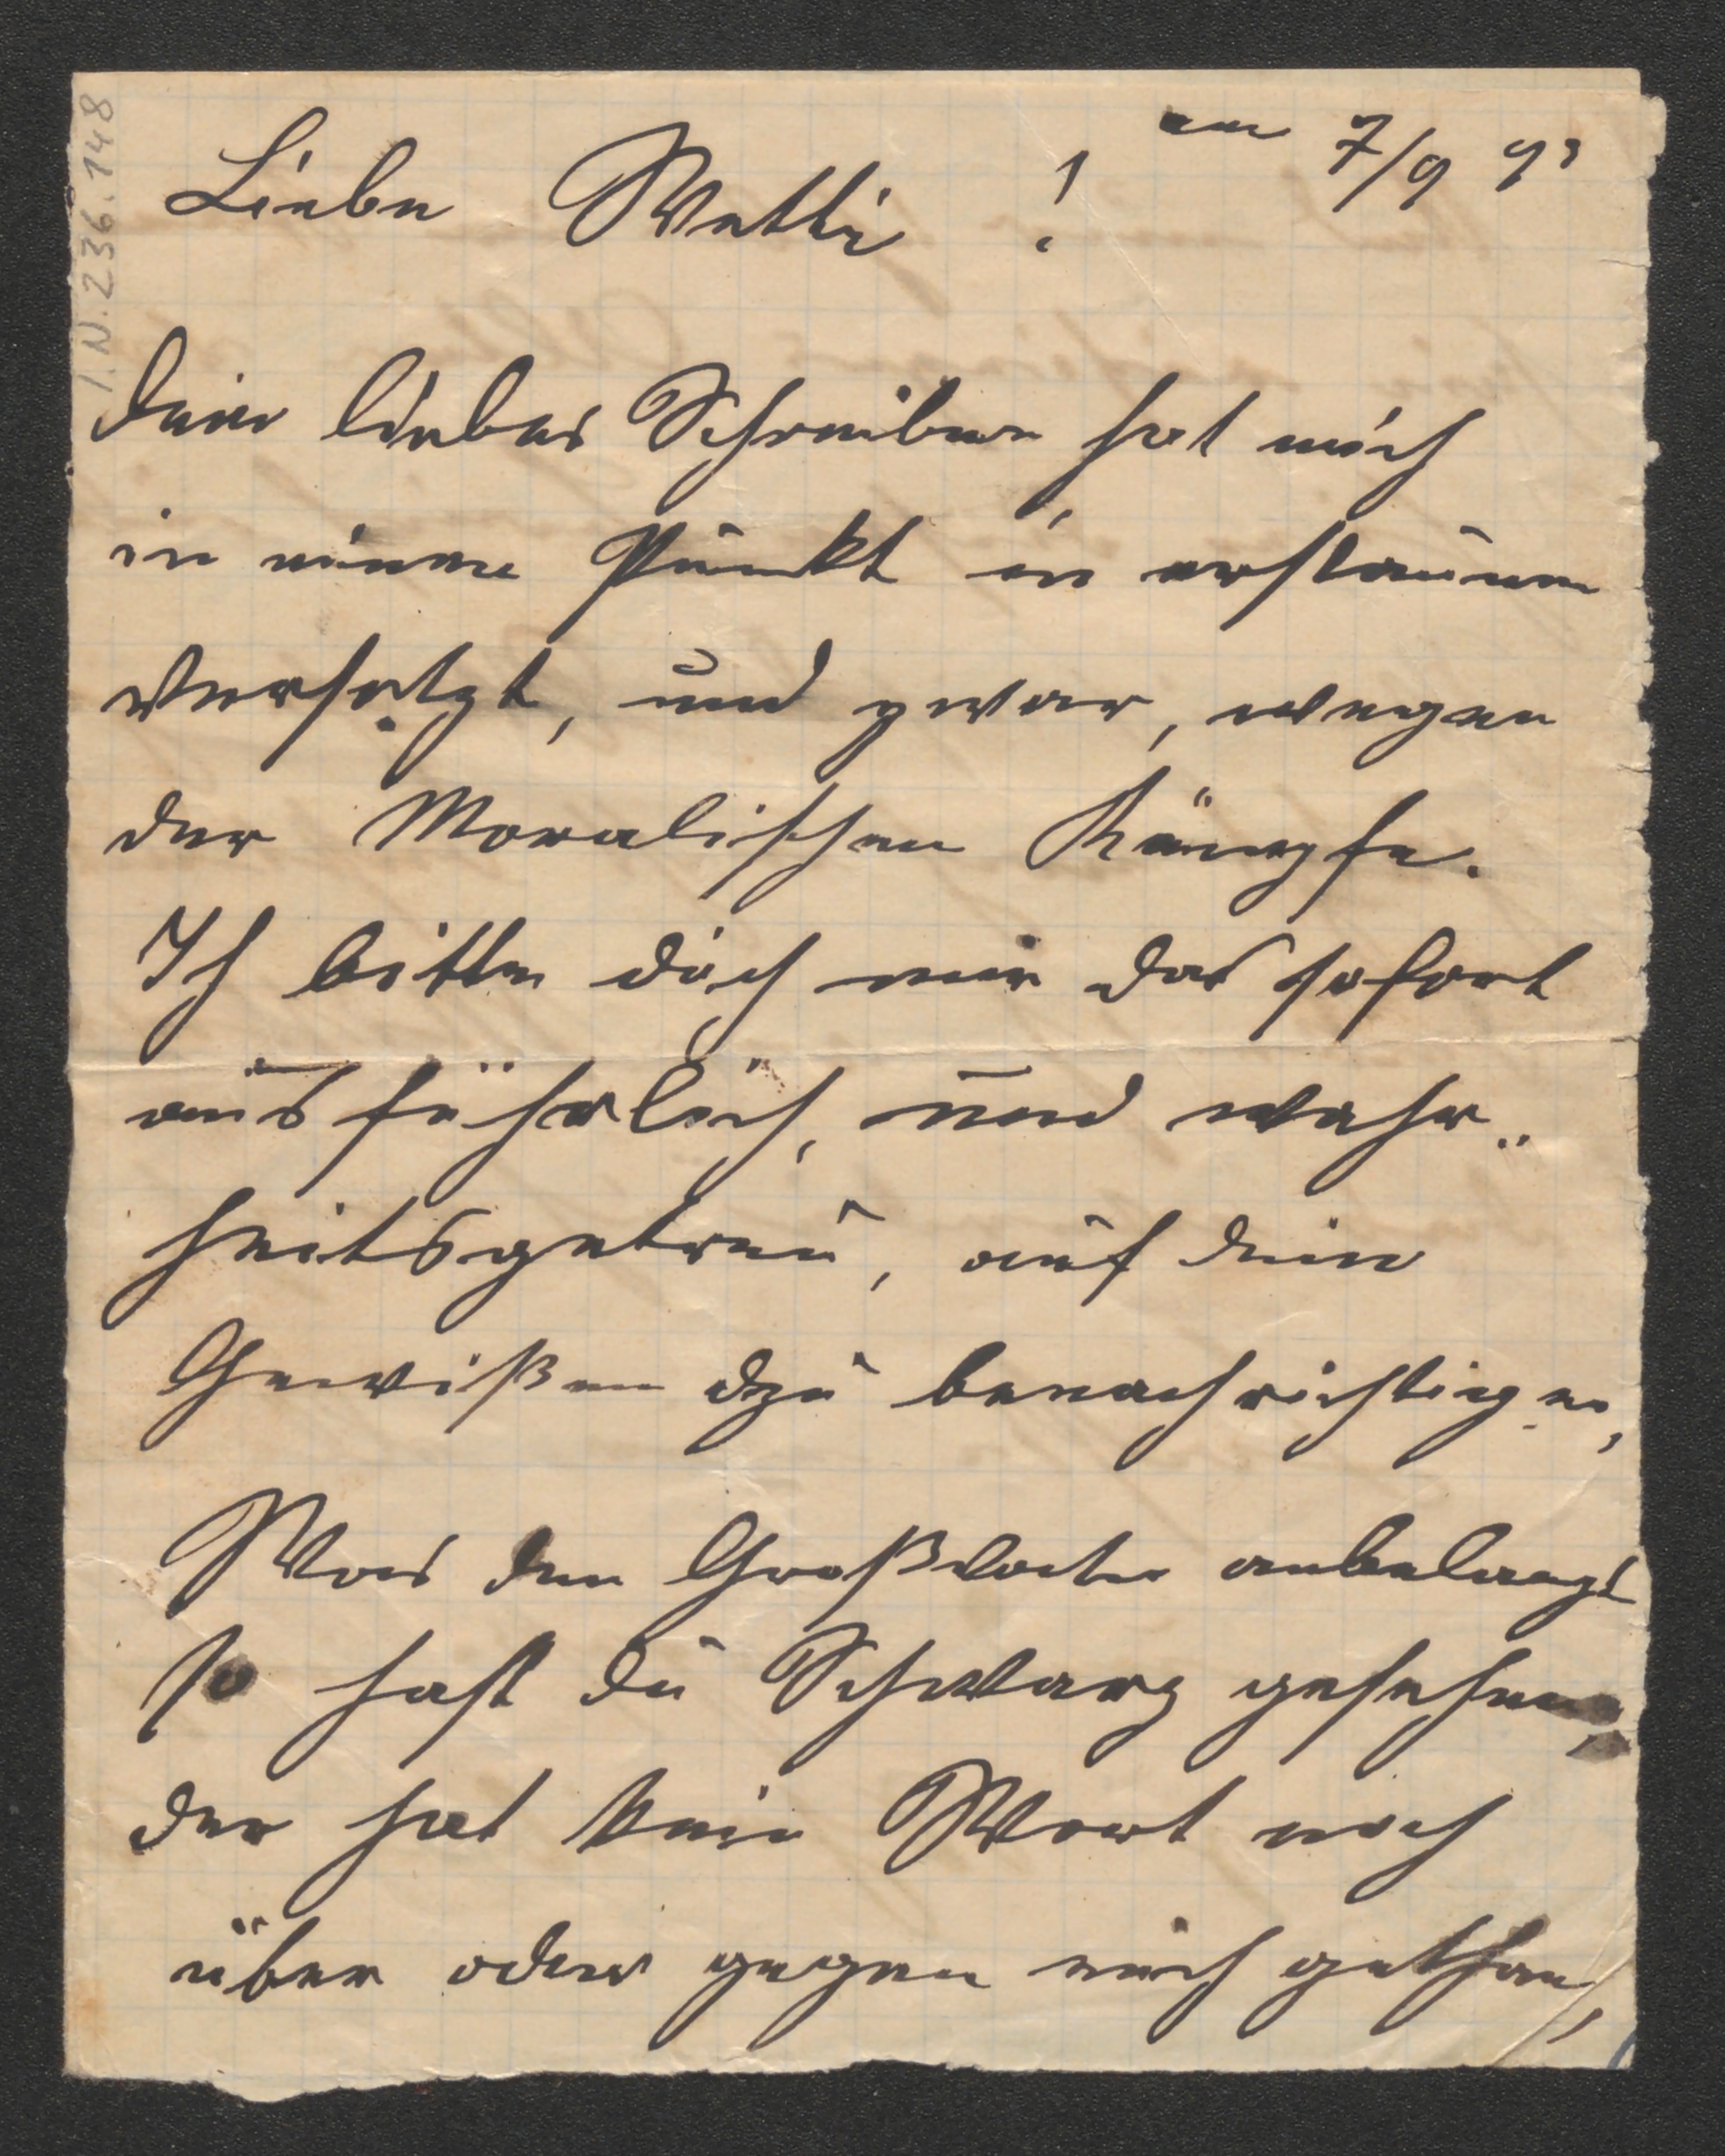 am 7/9 93
Liebe Wetti !
I.N. 236.148
dein liebes Schreiben hat mich
in einem Punkt in erstaunen
versetzt, und zwar, wegen
der Moralischen Kämpfe.
Ich bitte dich mir das sofort
ausführlich, und wahr„
heitsgetreu, auf dein
Gewißen zu benachrichtigen,
Was den Großvater anbelangt
so hast du Schwarz gesehen,
der hat kein Wort noch
über oder gegen mich gethan,